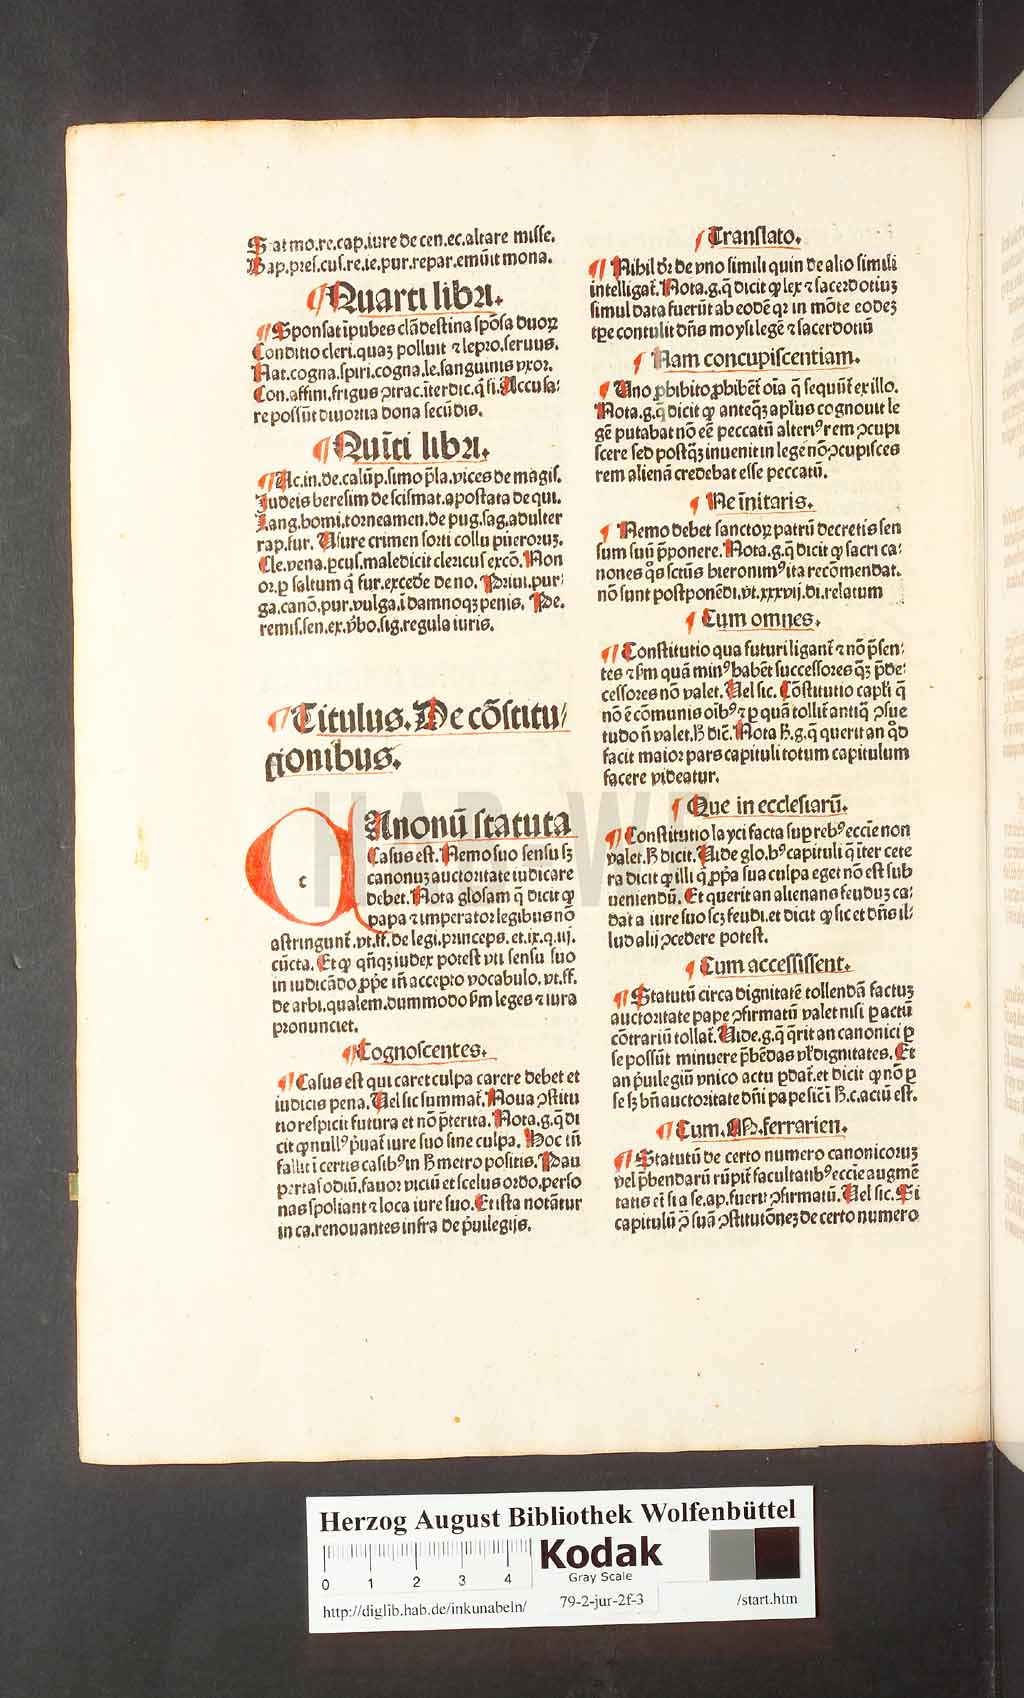 Stat mo.re.cap.iure de cen.ec.altare misse.
Bap.pres.cus.re.ie.pur.repar.emūit mona.
¶Quarti libri.
¶Sponsat īpubes clādestina spōsa duoꝝ
Conditio cleri.quaꝫ polluit ⁊ lepro.seruus.
Nat.cogna.spiri.cogna.le.sanguinis vxor.
Con.affini.frigus ꝯtrac.īter dic.q̄ si.Accusa⸗
re possūt diuortia dona secūdis.
¶Quīti libri.
¶Ac.in.de.calūp.simo p̄la.vices de magis.
Iudeis heresim de scismat.apostata de qui.
Lang.homi.torneamen.de pug.sag.adulter
rap.fur. Usure crimen sorti collu pūeroruꝫ.
Cle.vena.ꝑcus.maledicit clericus excō.Non
or.ꝑ saltum q̄ fur.excede de no. Priui.pur⸗
ga.canō.pur.vulga.ī damnoqꝫ penis. Pe.
remis.sen.ex.v̄bo.sig.regula iuris.
¶Titulus.De cōstitu⸗
tionibus.
c
CAnonū statuta
Casus est. Nemo suo sensu sꝫ
canonuꝫ auctoritate iudicare
debet. Nota glosam q̄ dicit ꝙ
papa ⁊ imperator legibus nō
astringunt̄.vt.ff.de legi.princeps.et.ix.q.iij.
cūcta. Et ꝙ qn̄qꝫ iudex potest vti sensu suo
in iudicādo ꝓpe iā accepto vocabulo.vt.ff.
de arbi.qualem.dummodo ẜm leges ⁊ iura
pronunciet.
¶Cognoscentes.
¶Casus est qui caret culpa carere debet et
iudicis pena. Uel sic summat̄. Noua ꝯstitu
tio respicit futura et nō p̄terita. Nota.g.q̄ di
cit ꝙ nullꝰ p̄uat̄ iure suo sine culpa. Hoc tn̄
fallit ī certis casibꝰ in ħ metro positis. Pau
pertas odiū.fauor viciū et scelus ordo.perso
nas spoliant ⁊ loca iure suo. Et ista notātur
in ca.renouantes infra de p̄uilegijs.
¶Translato.
¶Nihil dr̄ de vno simili quin de alio simili
intelligat̄. Nota.g.q̄ dicit ꝙ lex ⁊ sacerdotiuꝫ
simul data fuerūt ab eodē qr in mōte eodeꝫ
tꝑe contulit dn̄s moysi legē ⁊ sacerdotiū
¶Nam concupiscentiam.
¶Uno ꝓhibito ꝓhibēt oīa q̄ sequūt̄ ex illo.
Nota.g.q̄ dicit ꝙ anteqꝫ aplus cognouit le
gē putabat nō eē peccatū alteriꝰ rem ꝯcupi
scere sed postqꝫ inuenit in lege nō ꝯcupisces
rem alienā credebat esse peccatū.
¶Ne īnitaris.
¶Nemo debet sanctoꝝ patrū decretis sen
sum suū p̄ponere. Nota.g.q̄ dicit ꝙ sacri ca⸗
nones qͦs sctūs hieronimꝰ ita recōmendat.
nō sunt postponēdi.vt.xxxvij.di.relatum
¶Cum omnes.
¶Constitutio qua futuri ligant̄ ⁊ nō p̄sen⸗
tes ⁊ ẜm quā minꝰ habēt successores qꝫ p̄de⸗
cessores nō valet. Uel sic. Cōstitutio capl'i q̄
nō ē cōmunis oībꝰ ⁊ ꝑ quā tollit̄ antiq̄ ꝯsue
tudo n̄ valet.ħ dic̄. Nota ħ.g.q̄ querit an qd̄
facit maior pars capituli totum capitulum
facere videatur.
¶Que in ecclesiarū.
¶Constitutio layci facta suꝑ rebꝰ eccīe non
valet.ħ dicit. Uide glo.hꝰ capituli q̄ īter cete
ra dicit ꝙ illi q̄ ꝓpa sua culpa eget nō est sub
ueniendū. Et querit an alienans feuduꝫ ca⸗
dat a iure suo scꝫ feudi.et dicit ꝙ sic et dn̄s il⸗
lud alij ꝯcedere potest.
¶Cum accessissent.
¶Statutū circa dignitatē tollendā factuꝫ
auctoritate pape ꝯfirmatū valet nisi ꝑ actū
cōtrariū tollat̄. Uide.g.q̄ q̄rit an canonici ꝑ
se possūt minuere p̄bēdas vl' dignitates. Et
an p̄uilegiū vnico actu ꝑdat̄.et dicit ꝙ nō ꝑ
se sꝫ bn̄ auctoritate dn̄i pape sic ī ħ.c.actū est.
¶Cum.M.ferrarien.
¶Statutū de certo numero canonicoruꝫ
vel p̄bendarū rūpit̄ facultatibꝰ eccīe augmē
tatis etī si a se.ap.fuerit ꝯfirmatū. Uel sic. Si
capitulū ꝑ suā ꝯstitutōneꝫ de certo numero
HAB-W
Herzog August Bibliothek Wolfenbüttel
0 1 2 3 4
Kodak
Gray Scale
http://diglib.hab.de/inkunabeln/
79-2-jur-2f-3
/start.htm